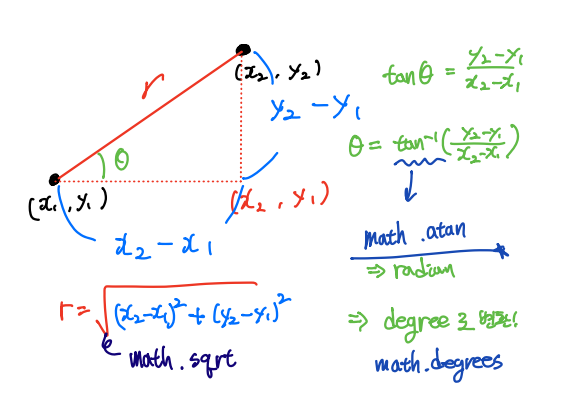 r
(x₂, y₂)
y₂ - y₁
θ
(x₁, y₁)
(x₂, y₁)
x₂ - x₁
r = √(x₂-x₁)² + (y₂-y₁)²
math.sqrt
tanθ = (y₂-y₁)/(x₂-x₁)
θ = tan⁻¹((y₂-y₁)/(x₂-x₁))
math.atan
⇒ radian
⇒ degree로 변환!
math.degrees